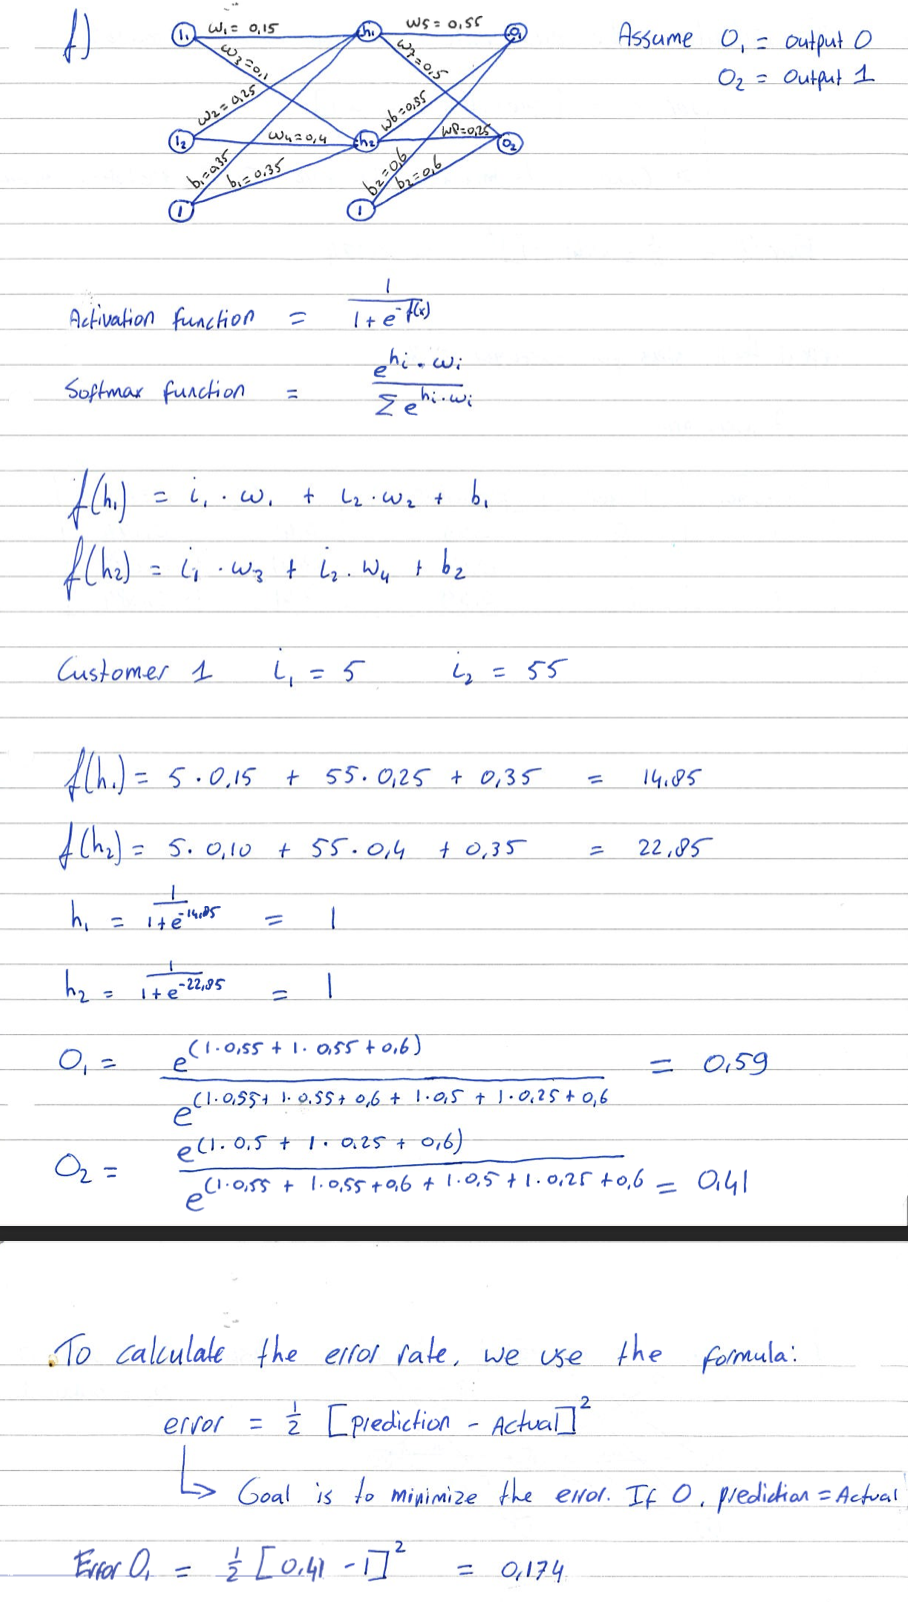 f)
I₁ w₁ = 0,15 h₁ w5 = 0,55 O₁
w3 = 0,1
w7 = 0,5
w₂ = 0,25
w6 = 0,55
I₂ w4 = 0,4 h₂ w8 = 0,25 O₂
b₁ = 0,35
b₁ = 0,35
b2 = 0,6
b2 = 0,6
1 1
Assume O₁ = output 0
O₂ = Output 1
Activation function = 1 / 1 + e^-f(x)
Softmax function = e^hi · wi / Σ e^hi·wi
f(h₁) = i₁ · w₁ + i₂ · w₂ + b₁
f(h2) = i₁ · w3 + i₂ · w4 + b2
Customer 1 i₁ = 5 i₂ = 55
f(h₁) = 5 · 0,15 + 55 · 0,25 + 0,35 = 14,85
f(h2) = 5 · 0,10 + 55 · 0,4 + 0,35 = 22,85
h₁ = 1 / 1+e^-14,85 = 1
h2 = 1 / 1+e^-22,85 = 1
O₁ = e^(1·0,55 + 1·0,55 + 0,6) / e^(1·0,55 + 1·0,55 + 0,6 + 1·0,5 + 1·0,25 + 0,6 = 0,59
O₂ = e^(1·0,5 + 1·0.25 + 0,6) / e^(1·0,55 + 1·0,55 + 0,6 + 1·0,5 + 1·0,25 + 0,6 = 0,41
To calculate the error rate, we use the formula:
error = 1/2 [prediction - Actual]²
↳ Goal is to minimize the error. If 0, prediction = Actual
Error O₁ = 1/2 [0,41 - 1]² = 0,174